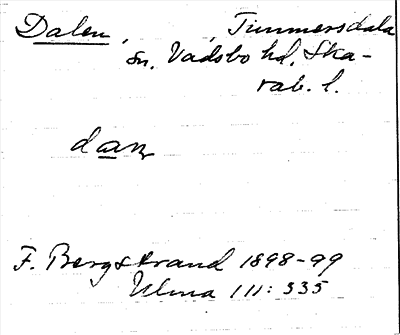 Dalen, , Timmersdala
sn, Vadsbo hd, Ska-
rab. l.
dan
F. Bergstrand 1898-99
Ulma 111: 535